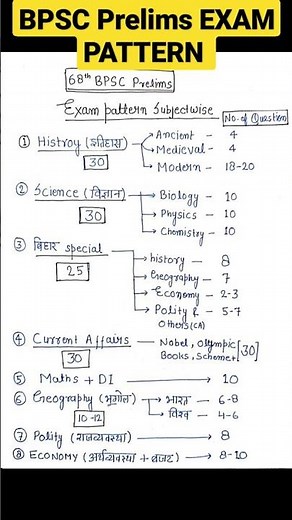 BPSC Prelims EXAM
PATTERN
68th BPSC Prelims
Exam pattern Subjectwise - No. of Question
① Histroy (इतिहास) → Ancient - 4
30 → Medieval - 4
→ Modern - 18-20
② Science (विज्ञान) → Biology - 10
30 → Physics - 10
→ Chemistry - 10
③ बिहार special → history - 8
25 → Geography - 7
→ Economy - 2-3
→ Polity & - 5-7
Others (CA)
④ Current Affairs → Nobel, Olympic [30]
30 Books, Scheme+
⑤ Maths + DI → 10
⑥ Geography (भूगोल) → भारत - 6-8
10-12 → विश्व - 4-6
⑦ Polity (राजव्यवस्था) → 8
⑧ ECONOMY (अर्थव्यवस्था + बजट) → 8-10